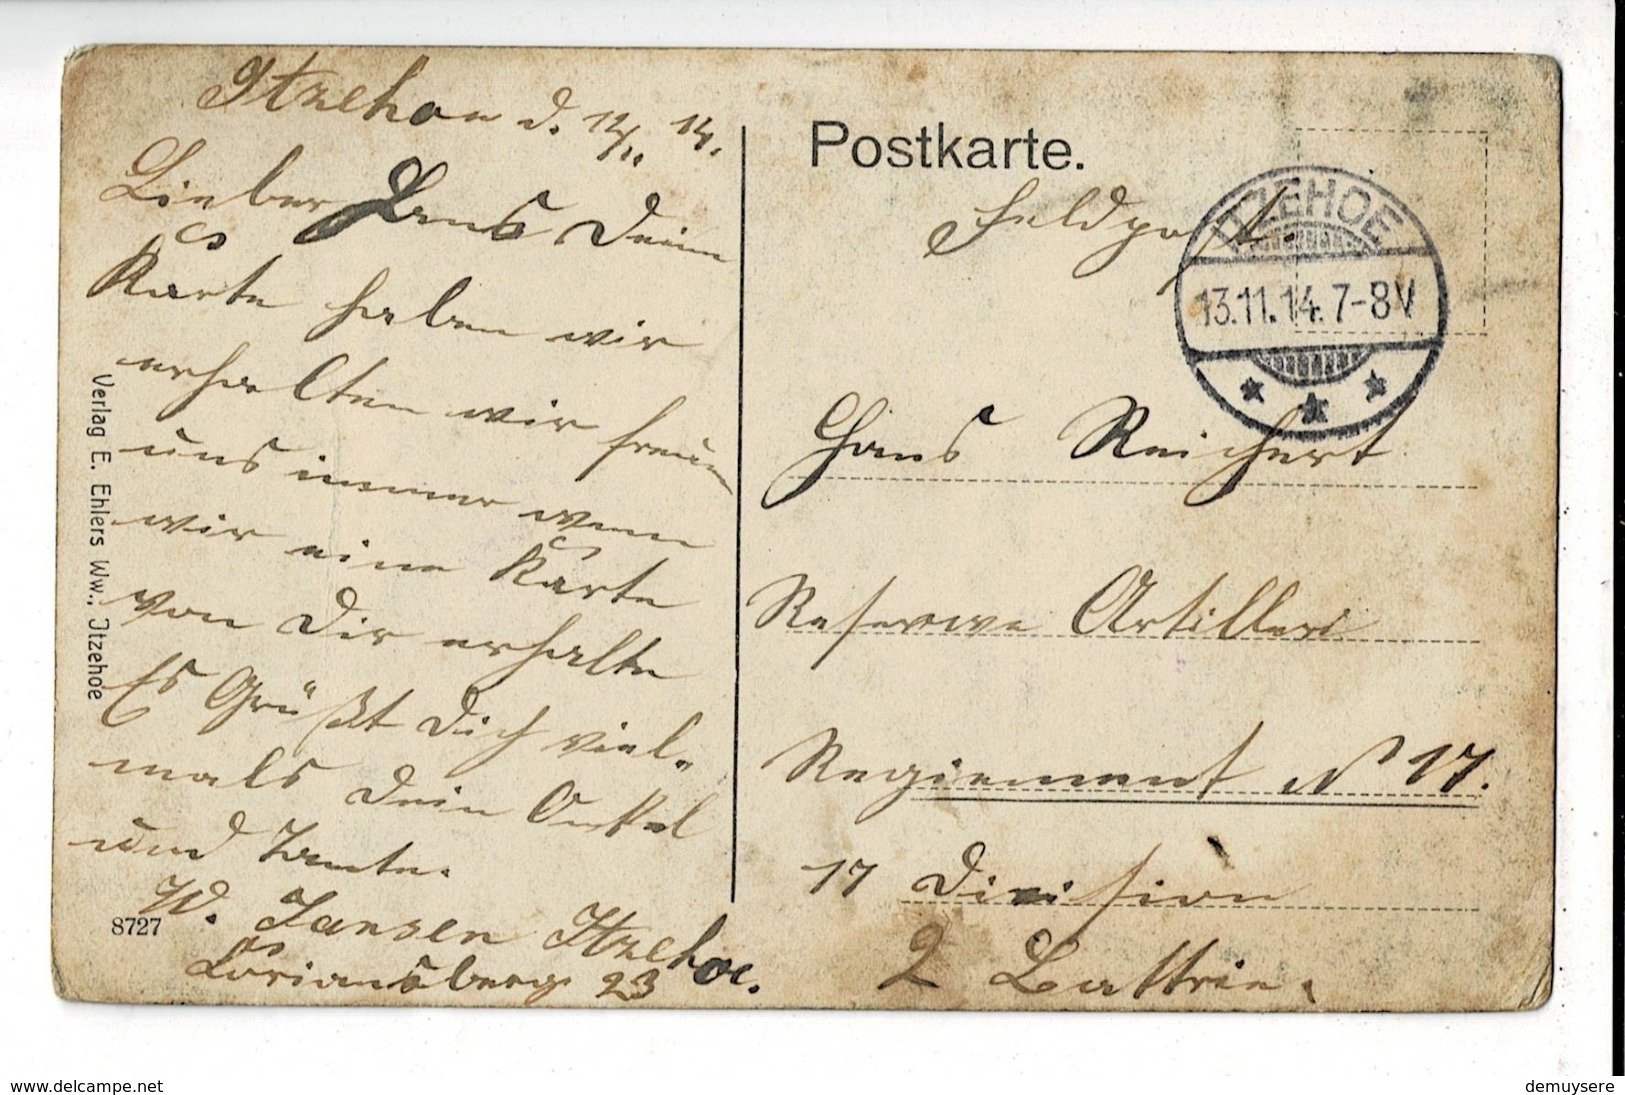 Itzehoe d. 12/11 14.
Lieber Hans Deine
Karte haben wir
erhalten wir freuen
uns immer wenn
wir eine Karte
von Dir erhalte
Es Grüßt Dich viel„
mals Dein Onkel
und Tante.
W. Jansen Itzehoe.
23
8727
Verlag E. Ehlers Ww., Itzehoe
Postkarte.
Feldpost.
ITZEHOE
13.11.14. 7-8V
Hans Reichert
Reserwe Artilleri
Regiement No 17.
17 Division
2 Battrie.
www.delcampe.net
demuysere